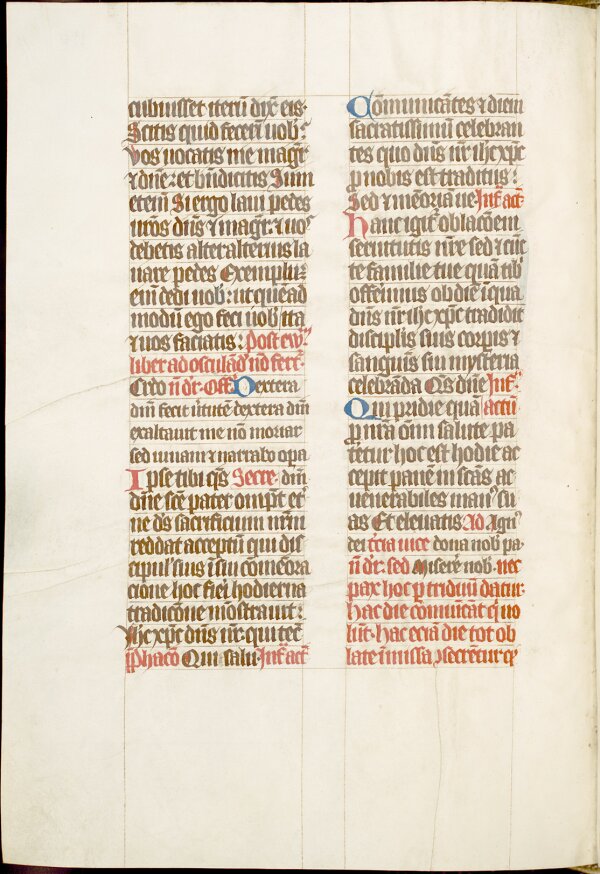 cubuisset iterū dix̄ eis·
Scitis quid fecerī uob̄:
Vos uocatis me magr̄
⁊ dn̄e: et bn̄dicitis Sum
etem̄ Si ergo laui pedes
ur̄os dn̄s ⁊ magr̄: ⁊ uos
debetis alter alterius la
uare pedes Exemplū
em̄ dedi uob̄: ut quēad
modū ego feci uob̄ ita
⁊ uos faciatis: Post ew̄ᵐ
liber ad osculād̄ nō fert᷑
Credo n̄ dr̄· Off̄ Dextera
dn̄i fecit u̓tutē dextera dn̄i
exaltauit me nō moriar
sed uiuam ⁊ narrabo opa
Ipse tibi qs̄ Secre· dn̄i
dn̄e sc̄e pater om̄pt̄ et̓
ne ds̄ sacrificium nr̄m
reddat acceptū qui dis
cipul̓ suis ī sui cōmēora
cione hoc fieri hodierna
tradicōne mōstrauit:
Ihc xpc dn̄s nr̄: qui tec̄
p̄phacō Qui salu· Inf᷑ act̄
Cōmunicātes ⁊ diem
sacratissimū celebran
tes quo dn̄s nr̄ ihc xpc
ꝓ nobis est traditus:
Sed ⁊ mēoria ue Inf᷑ act̄
Hanc igit᷑ oblacōem
seruitutis nr̄e sed ⁊ cūc
te familie tue quā tib̓
offerimus ob diē ī qua
dn̄s nr̄ ihc xpc tradidit
disciplis suis corpis ⁊
sanguis sui mysteria
celebrāda Qs̄ dn̄e Inf᷑
Qui pridie quā actū
ꝓ nr̄a om̄i salute pa
teretur hoc est hodie ac
cepit panē in sc̄as ac
uenerabiles man᷒ su
as Et eleuatis Ad Agn᷒
dei tr̄cia uice dona nob̄ pa·
n̄ dr̄: sed Miserē nob̄· nec
pax hoc ꝑ triduū datur·
Hac die cōmuīcāt q̓ uo
lūt· Hac eciā die tot ob
late ī missa ꝯsecrētur ꝙ